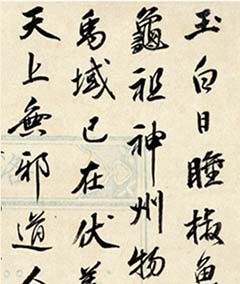 玉白日睡椒魚
龜祖神州物
禹域已在伏
天上無邪道人